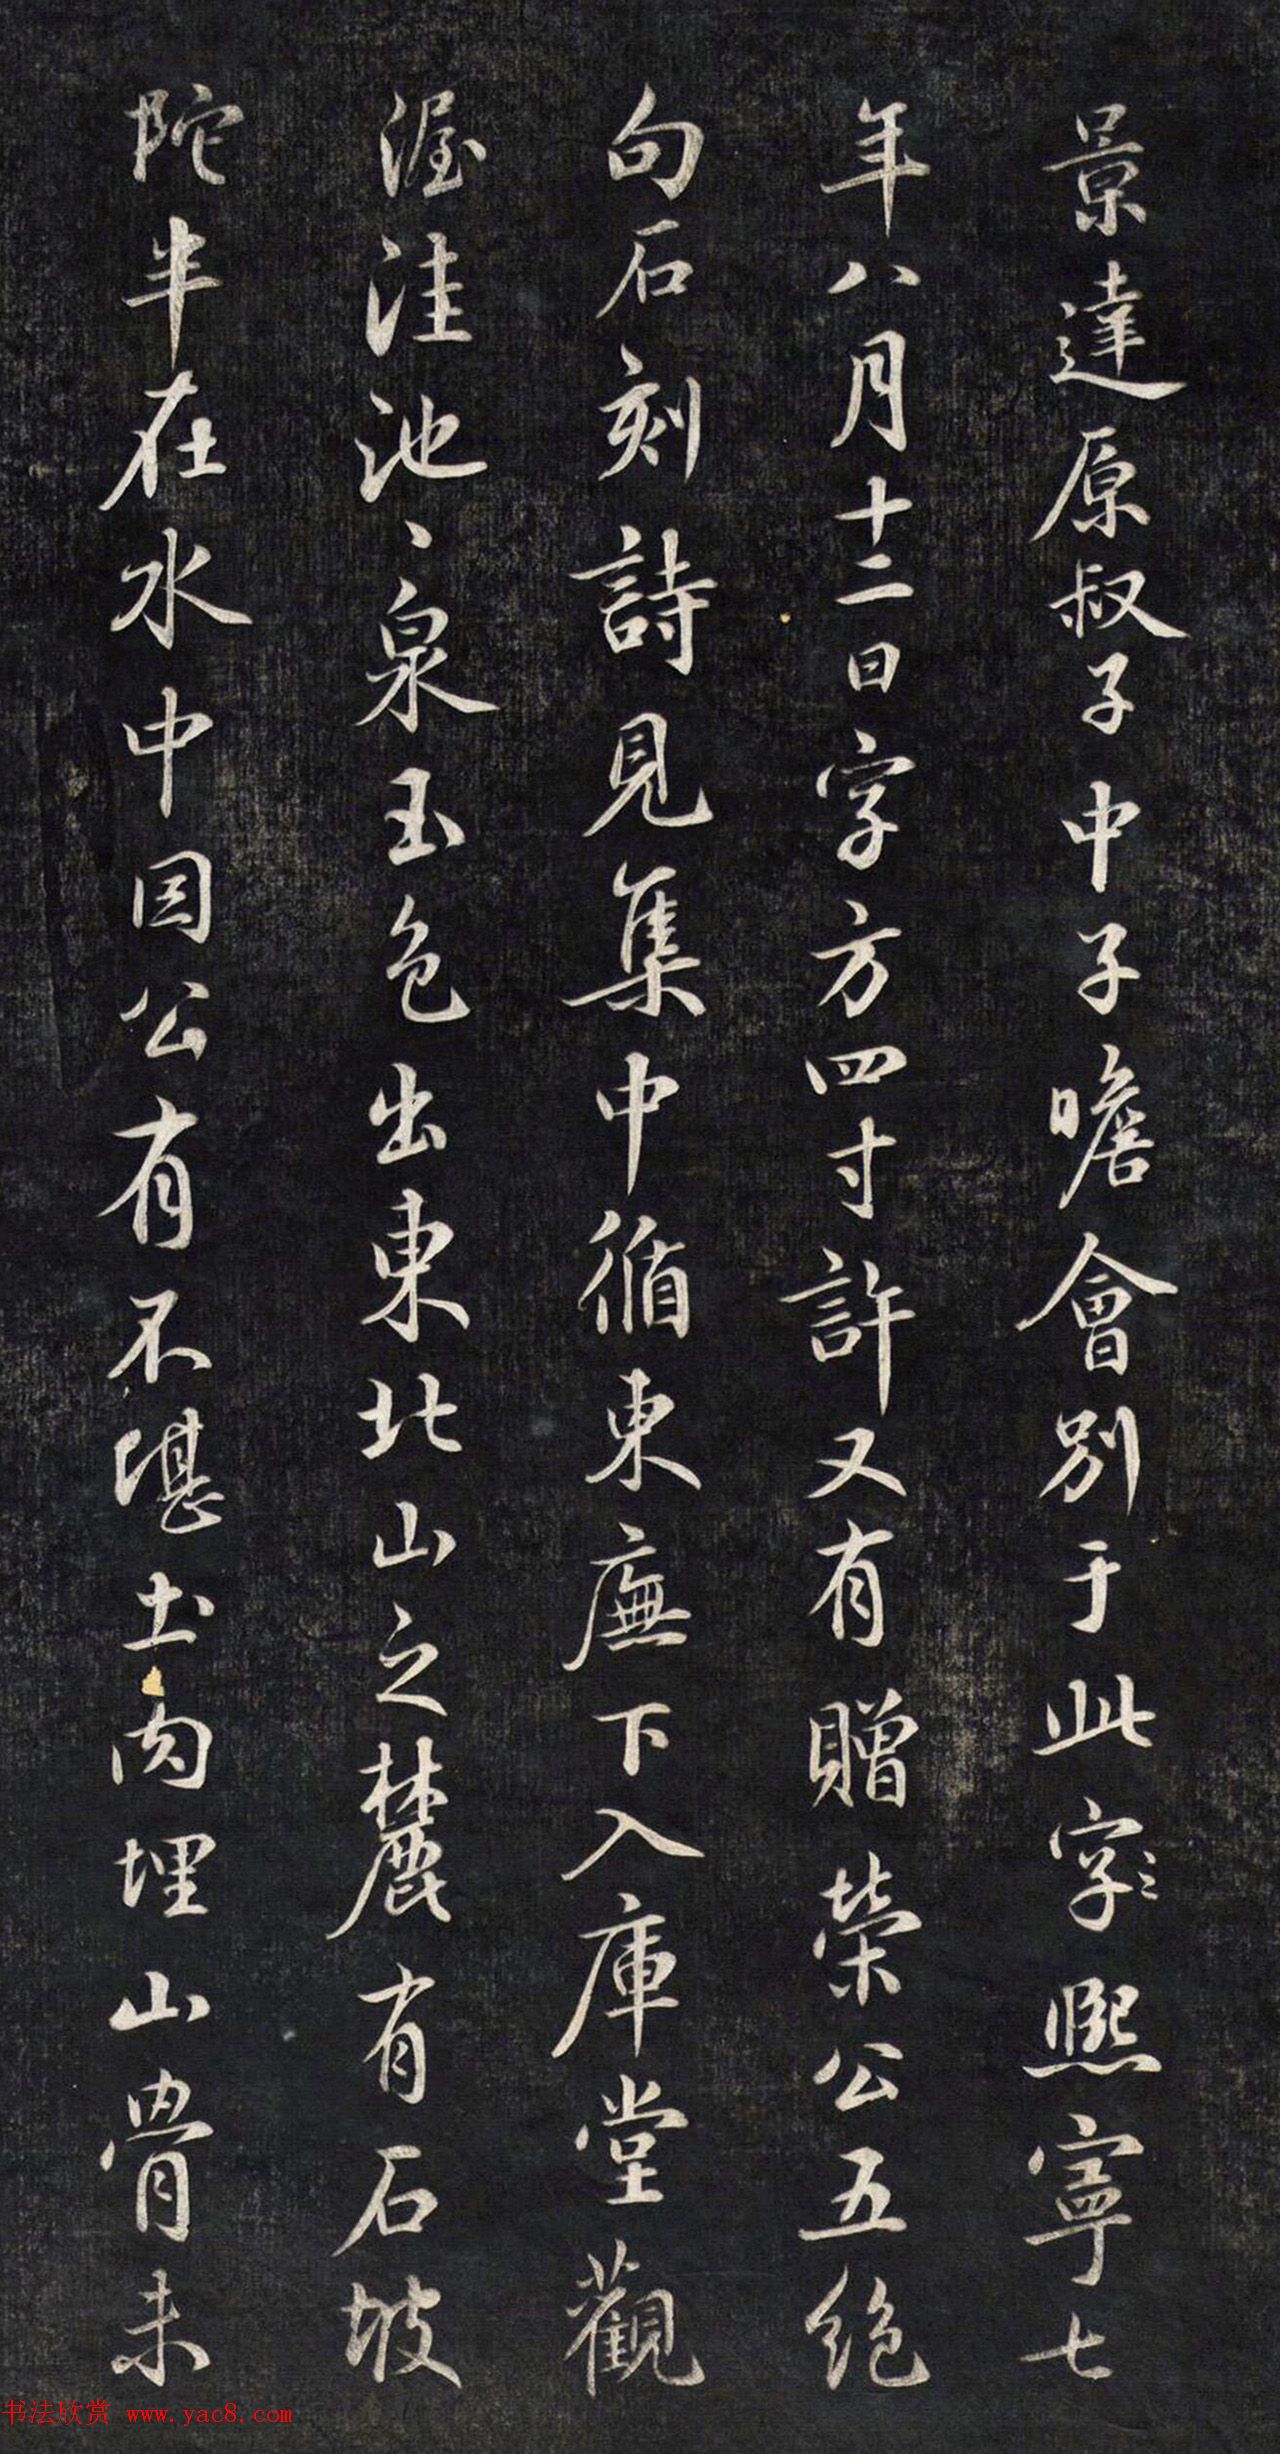 景達原叔子中子瞻會別于此字熙寧七
年八月十二日字方四寸許又有贈榮公五絕
句石刻詩見集中循東廡下入庫堂觀
渥洼池、泉玉色出東北山之麓有石坡
陀半在水中因公有不堪土肉埋山骨未
书法欣赏 www.yac8.com